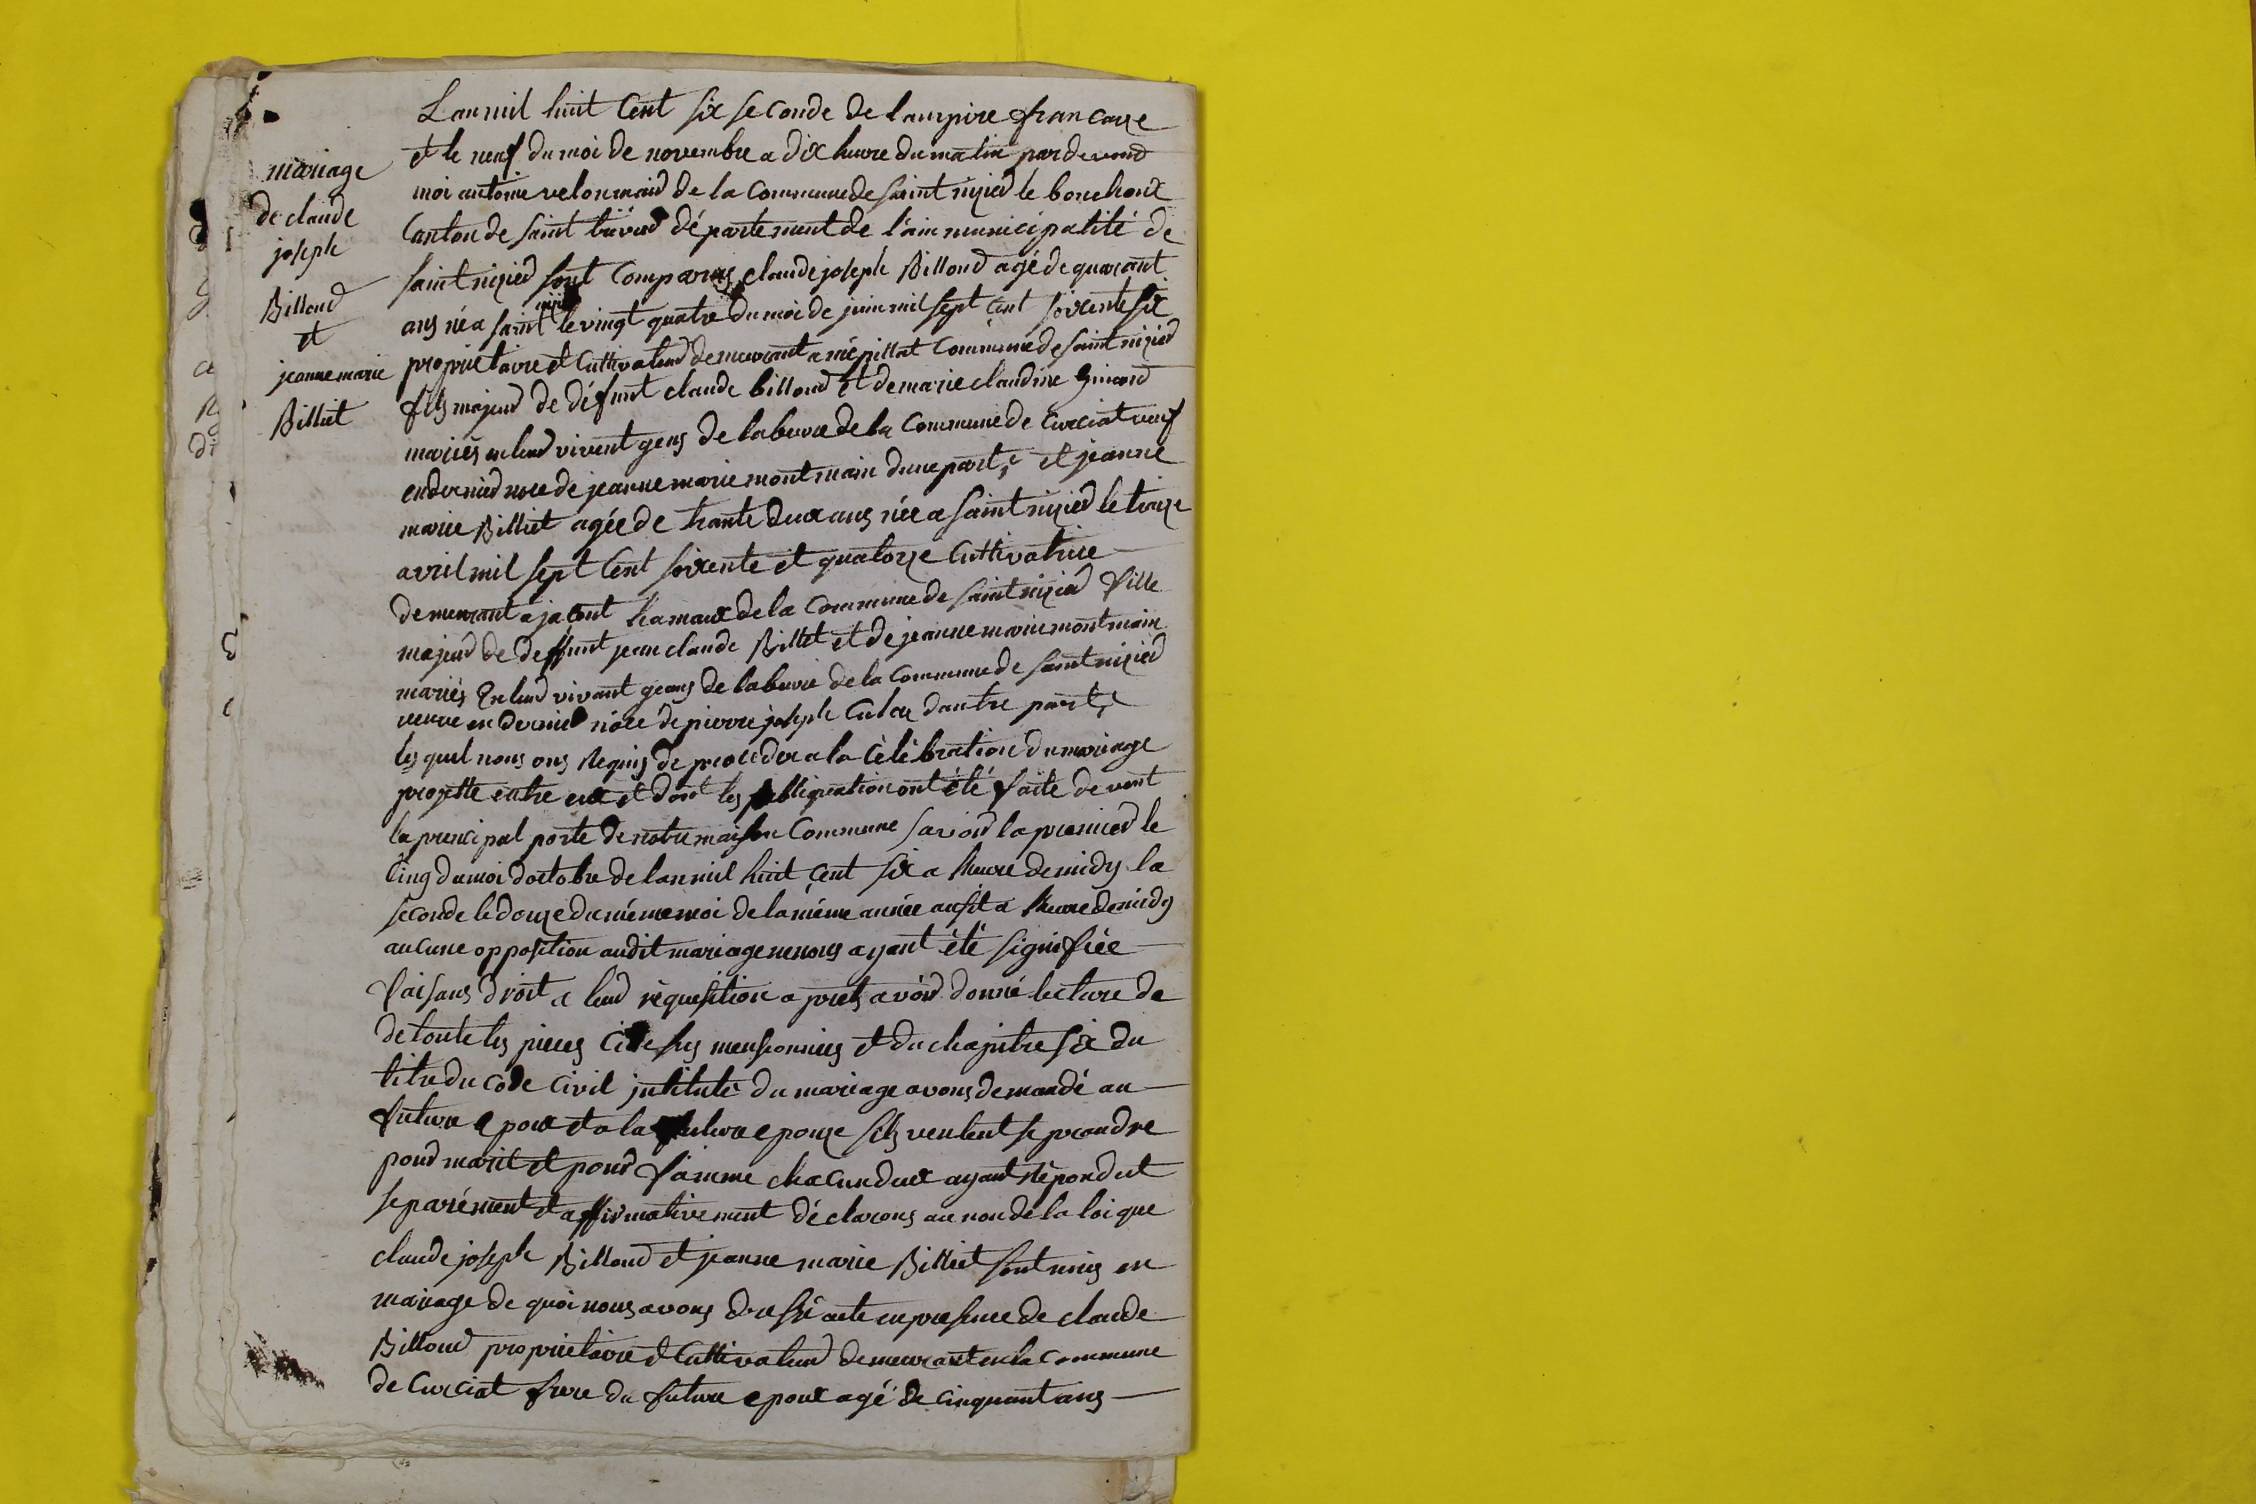 mariage
de claude
joseph
Billoud
et
jeanne marie
Billiet
Lan mil huit Cent six seconde de lampire francaize
et le neuf du moi de novembre a dix heure du matin par devend
moi antoine velon maird de la Commune de saint nizied le bouchoux
Canton de saint trivied département de l'ain municipalité de
saint nizied sont Comparus claude joseph Billoud agé de quarant
ans né a saint nizied le vingt quatre du moi de juin mil sept Cent soixente six
proprietaire et Cultivateud demeurant a mépillat Commune de saint nizied
fils majeud de défunt claude billoud et de marie claudine
mariés en leud vivent gens de labeure de la Commune de Curciat veuf
en dernied noce de jeanne marie montmain dune part, et jeanne
marie Billiet agée de trante deux ans née a saint nizied le traize
avril mil sept Cent soixente et quatorze Cultivatrice
demeurant a jacont hamaux de la Commune de saint nizied fille
majeud de deffunt jean claude Billiet et de jeanne marie montmain
mariés En leud vivant geans de labeure de la Commune de saint nizied
veuve en dernied noce de pierre joseph dautre part,
les quel nous ons Requis de proceder a la Célébration du mariage
projette entre eux et dont les publiquation ont été faite devent
la principal porte de notre maison Commune savoid la premied le
Cinq du moi doctobre de lan mil huit Cent six a lheure de midy la
seconde le douze du méme moi de la méme année ausit a lheure de midy
aucune opposition audit mariage ne nous ayant été signifiée
faisans droit a leud réquisition aprets avoid donné lecture de
de toute les pieces Ci desus mensionnies et du chapitre six du
titre du code Civil jntitulé du mariage avons demandé au
future epoux et a la future epouze sils veulent se prandre
poud marit et poud famme chacun deux ayant Répondut
separément et affirmativement déclarons au non de la loi que
claude joseph Billoud et jeanne marie Billiet sont unis en
mariage de quoi nous avons dressé acte en presence de claude
Billoud proprietaire et Cultivateud demeurant en la commune
de Curciat frere du future epoux agé de cinquant ans